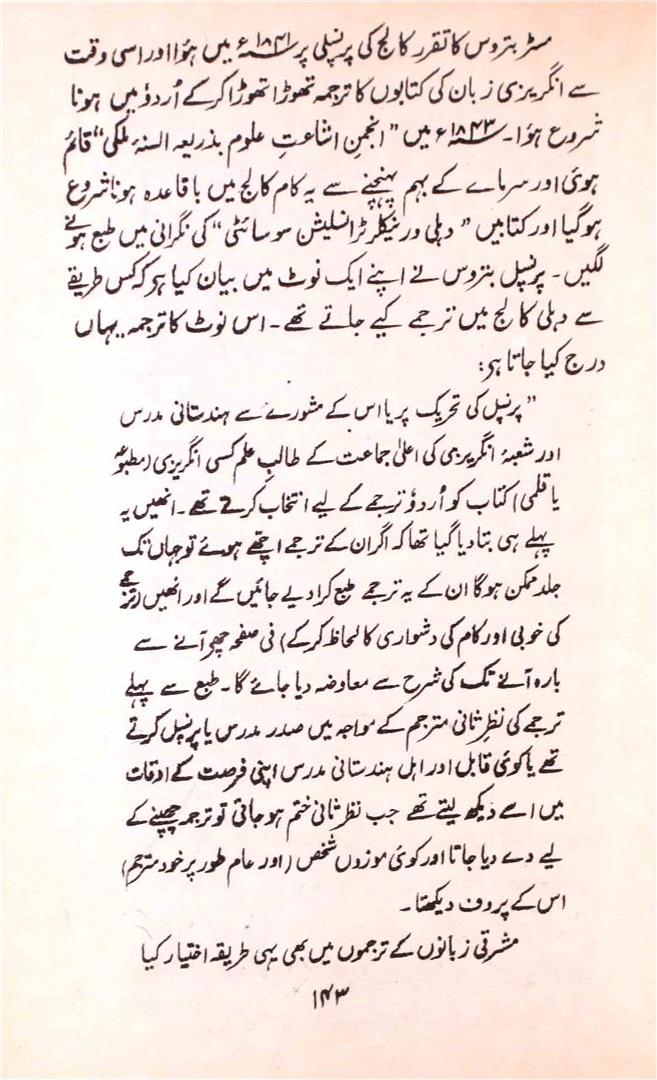 مسٹر بتروس کا تقرر کالج کی پرنسپلی پر ۱۸۴۱ء میں ہؤا اور اسی وقت
سے انگریزی زبان کی کتابوں کا ترجمہ تھوڑا تھوڑا کرکے اُردو میں ہونا
شروع ہؤا۔ ۱۸۴۳ء میں "انجمنِ اشاعتِ علوم بذریعہ السنۂ ملکی" قائم
ہوئی اور سرماے کے بہم پہنچنے سے یہ کام کالج میں باقاعدہ ہونا شروع
ہوگیا اور کتابیں "دہلی ورنیکلر ٹرانسلیشن سوسائٹی" کی نگرانی میں طبع ہونے
لگیں۔ پرنسپل بتروس نے اپنے ایک نوٹ میں بیان کیا ہر کہ کس طریقے
سے دہلی کالج میں ترجمے کیے جاتے تھے۔ اس نوٹ کا ترجمہ یہاں
درج کیا جاتا ہر:
"پرنسپل کی تحریک پر یا اس کے مشورے سے ہندستانی مدرس
اور شعبۂ انگریزی کی اعلیٰ جماعت کے طالبِ علم کسی انگریزی (مطبوعہ
یا قلمی) کتاب کو اُردو ترجمے کے لیے انتخاب کرتے تھے۔ انھیں یہ
پہلے ہی بتا دیا گیا تھا کہ اگر ان کے ترجمے اچھے ہوئے تو جہاں تک
جلد ممکن ہوگا ان کے یہ ترجمے طبع کرا دیے جائیں گے اور انھیں (ترجمے
کی خوبی اور کام کی دشواری کا لحاظ کرکے) فی صفحہ چھے آنے سے
بارہ آنے تک کی شرح سے معاوضہ دیا جائے گا۔ طبع سے پہلے
ترجمے کی نظرِ ثانی مترجم کے مواجہ میں صدر مدرس یا پرنسپل کرتے
تھے یا کوئی قابل اور اہل ہندستانی مدرس اپنی فرصت کے اوقات
میں اسے دیکھ لیتے تھے جب نظر ثانی ختم ہو جاتی تو ترجمہ چھپنے کے
لیے دے دیا جاتا اور کوئی موزوں شخص (اور عام طور پر خود مترجم)
اس کے پروف دیکھتا۔
مشرقی زبانوں کے ترجموں میں بھی یہی طریقہ اختیار کیا
۱۴۳